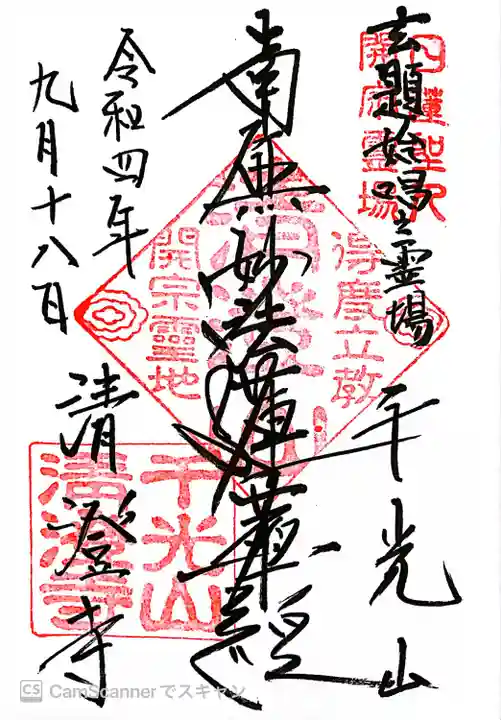 玄題始唱之霊場
日蓮聖人
開宗霊場
千光山
南無妙法蓮華経
得度立教
開宗霊地
令和四年
九月十八日
清澄寺
千光山
清澄寺
CS CamScannerでスキャン